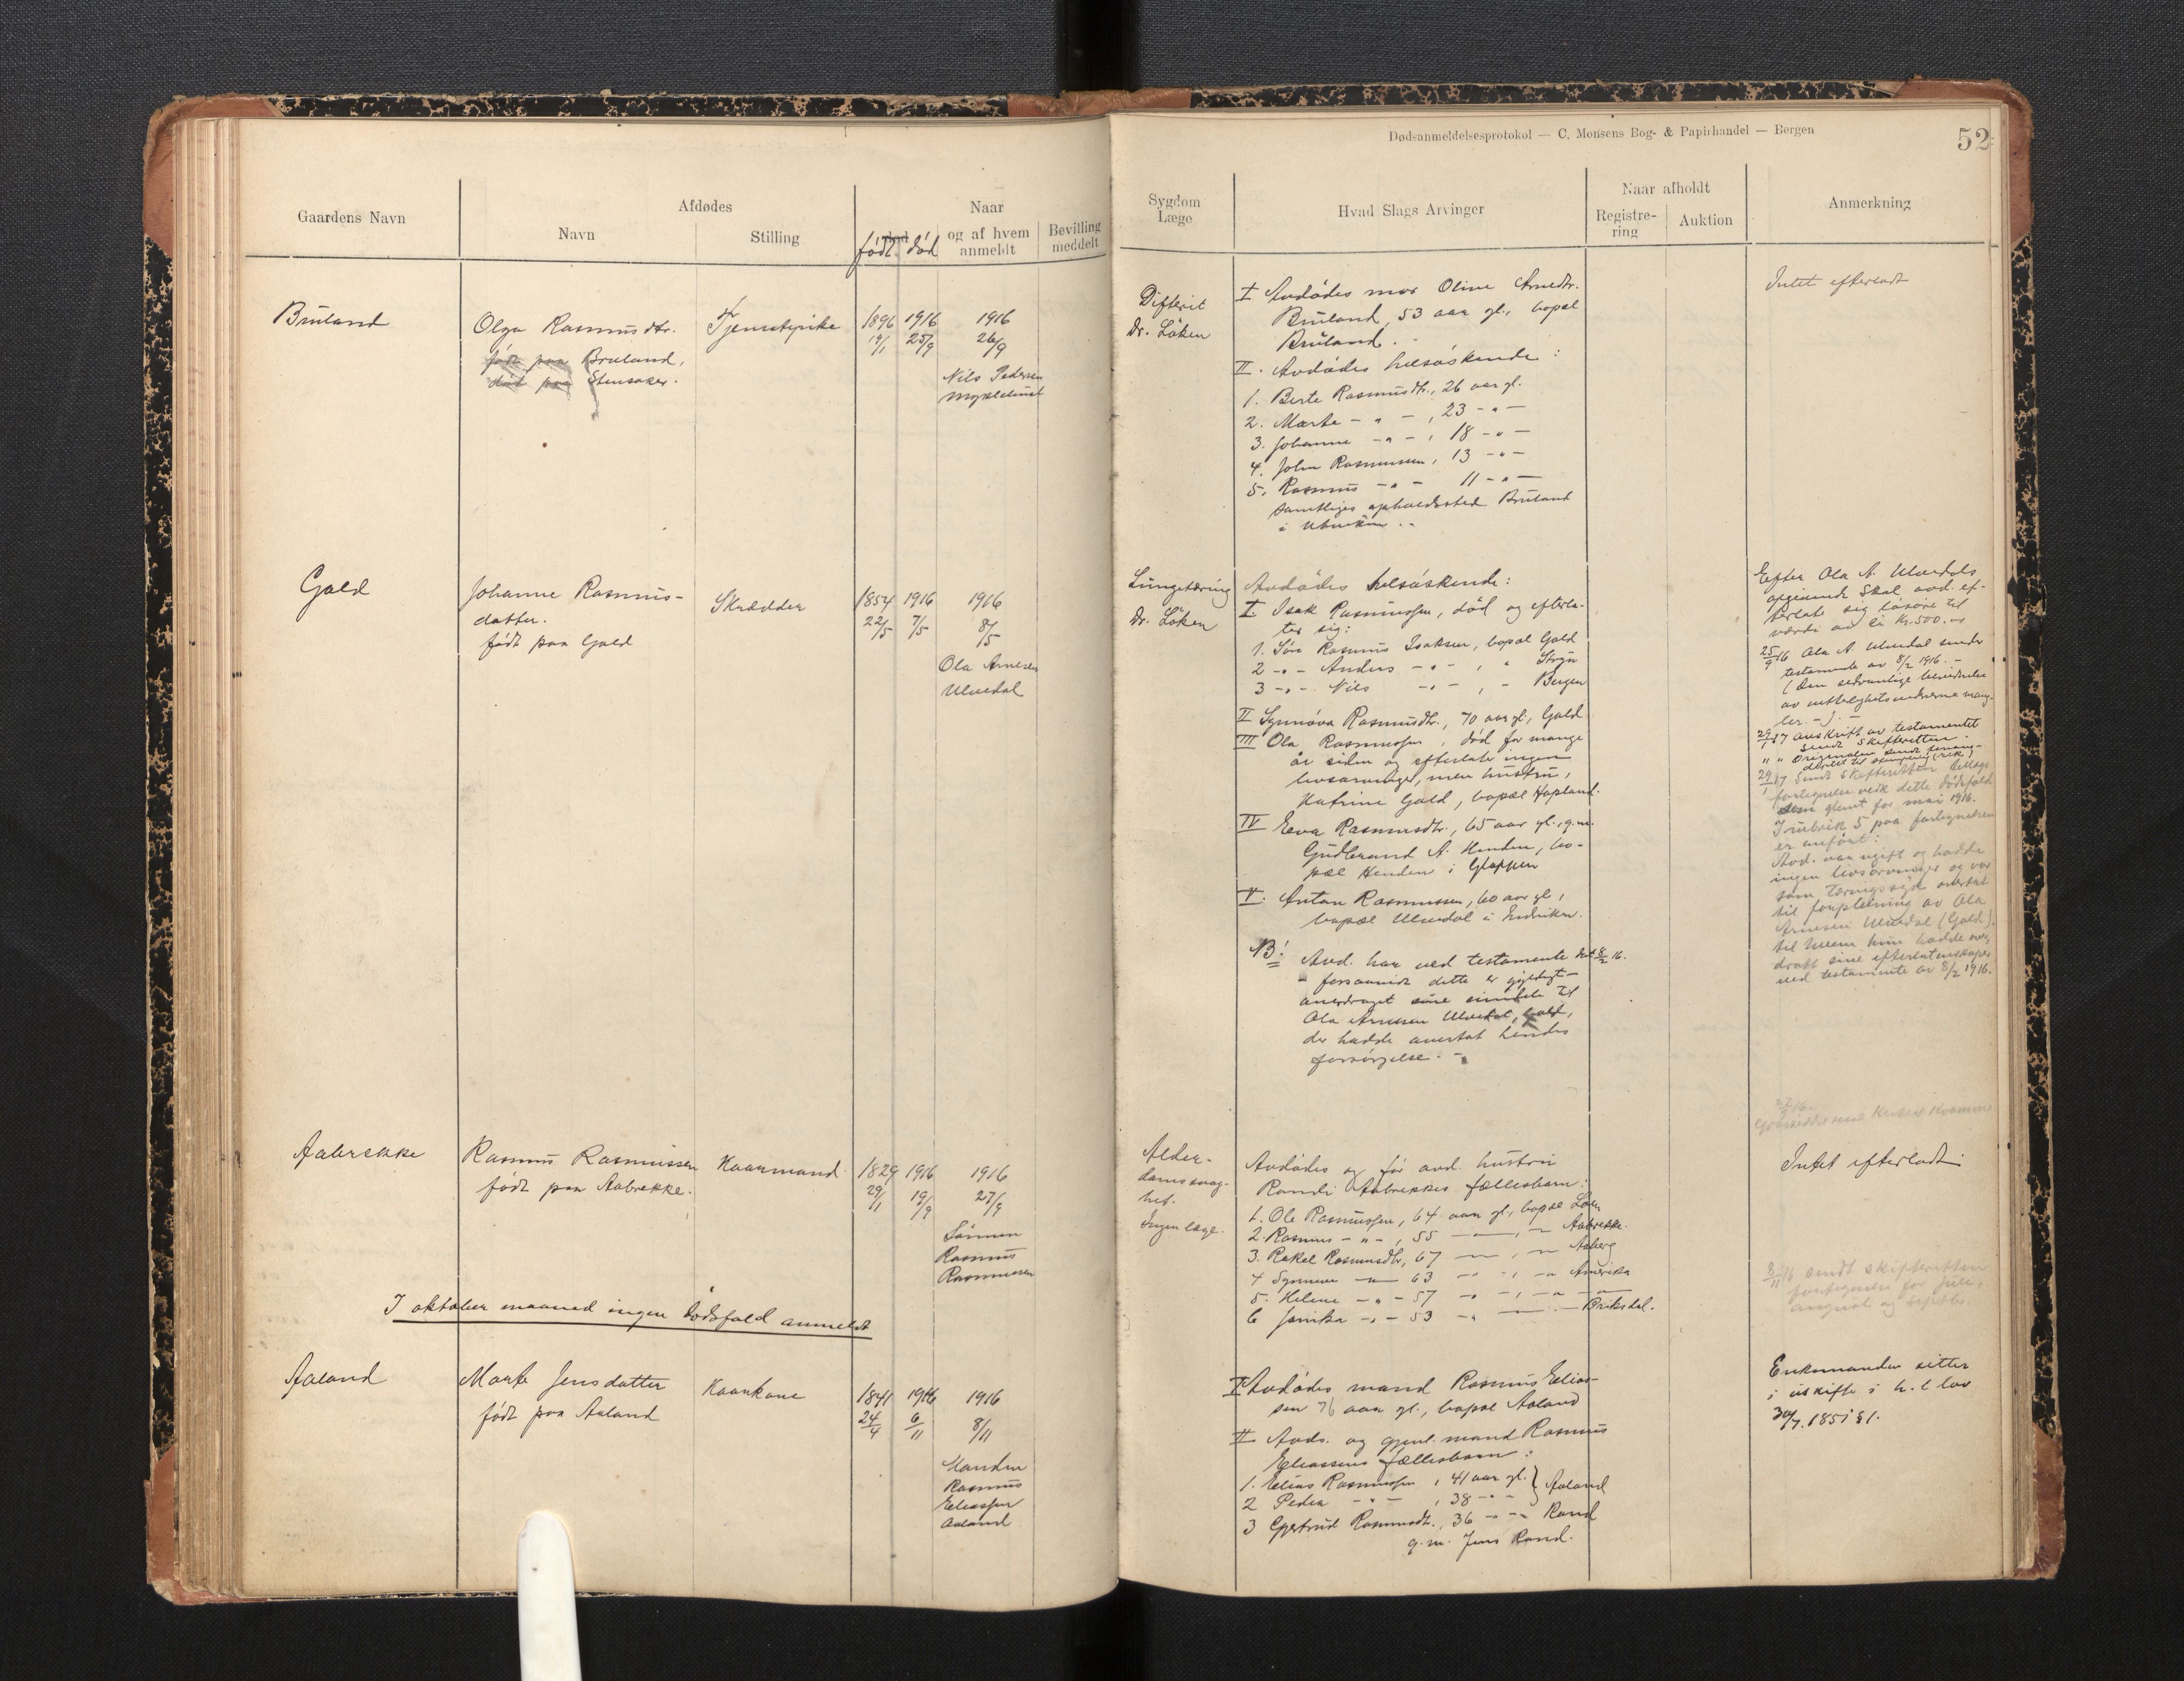 Dødsanmeldelsesprotokol — C. Monsens Bog- & Papirhandel — Bergen
52
Gaardens Navn
Afdødes
Navn
Stilling
Naar
født død
og af hvem
anmeldt
Bevilling
meddelt
Sygdom
Læge
Hvad Slags Arvinger
Naar afholdt
Registre-
ring
Auktion
Anmerkning
Bruland
Olga Rasmusdtr.
født paa Bruland,
død paa Stensaker.
Tjenestepike
1896 1916 1916
25/9 26/9
Nils Pedersen
Myklebust
Difterit
Dr. Löken
I Avdödes mor Oline Arnedtr.
Bruland, 53 aar gl., bopæl
Bruland.
II. Avdödes helsöskende:
1. Berte Rasmusdtr., 26 aar gl.
2. Marte - " - , 23 - " -
3. Johanne - " - , 18 - " -
4. John Rasmussen, 13 - " -
5. Rasmus - " - 11 - " -
samtliges opholdssted Bruland
i
Intet efterladt
Gald
Johanne Rasmus-
datter.
født paa Gald
Skrædder
1854 1916 1916
22/5 7/5 8/5
Ola Arnesen
Ulvedal
Lungetæring
Dr. Löken
Avdödes helsöskende:
I. Isak Rasmussen, död og efterla-
ter sig:
1. Sön Rasmus Isaksen, bopæl Gald
2 - " - Anders - " - , " Stryn
3 - " - Nils - " - , - Bergen
II Synnöva Rasmusdtr., 70 aar gl., Gald
III Ola Rasmussen, död for mange
år siden og efterlate ingen
livsarvinger, men hustru,
Katrine Gald, bopæl Hopland.
IV Eva Rasmusdtr., 65 aar gl., g.m.
Gudbrand A. Henden, bo-
pæl Henden i Gloppen
V. Anton Rasmussen, 60 aar gl.,
bopæl Ulvedal i Indviken.
NB! Avd. har ved testamente dat. 8/2 16.
- forsaavidt dette er gyldigt -
overdraget sine eiendele til
Ola Arnesen Ulvedal, Gald,
der hadde overtat hendes
forsörgelse. -
Efter Ola A. Ulvedals
opgivende skal avd. ef-
terlate sig lösöre til
værdi av ca kr. 500.00
25/9 16 Ola A. Ulvedal sender
testamente av 8/2 1916. -
(Den sedvanlige bevidnelse
av vitterlighetsvidnerne mang-
ler. -). -
29/1 17 avskrift av testamentet
sendt skifteretten.
" " Originalen sendt
til stempling
29/1 17 Sendt skifteretten tillægs
fortegnelse vedk. dette dödsfald
som glemt for mai 1916.
I rubrik 5 paa fortegnelsen
er anfört:
Avd. var ugift og hadde
ingen livsarvinger og var
som tæringssyk overtat
til forpleining av Ola
Arnesen Ulvedal (Gald).
til hvem hun hadde over-
dratt sine efterladenskaper
ved testamente av 8/2 1916.
Aabrekke
Rasmus Rasmussen
født paa Aabrekke.
Kaarmand.
1829 1916 1916
29/1 19/9 27/9
Sönnen
Rasmus
Rasmussen
Alder-
doms svag-
het.
Ingen læge.
Avdödes og för avd. hustru
Randi Aabrekkes fællesbarn:
1. Ole Rasmussen, 64 aar gl., bopæl Loen
2. Rasmus - " - , 55 - " - Aabrekke.
3. Rakel Rasmusdtr., 67 - " - Aaberg
4 Synneve - " - 63 - " - Amerika
5. Helene - " - 57 - " -
6 Janika - " - 53 - " - Briksdal.
Intet efterladt
8/11 16 sendt skifteretten
fortegnelse for juli,
august og septbr.
I oktober maaned ingen dødsfald anmeldt
Aaland
Marte Jensdatter
født paa Aaland
Kaarkone
1841 1916 1916
24/4 6/11 8/11
Manden
Rasmus
Eliassen
Aaland
I Avdödes mand Rasmus Elias-
sen 76 aar gl., bopæl Aaland
II Avds. og gjenl. mand Rasmus
Eliassens fællesbarn:
1. Elias Rasmussen, 41 aar gl. } Aaland
2 Peder - " - , 38 - " -
3 Gjertrud Rasmusdtr., 36 - " - Rand
g.m. Jens Rand.
Enkemanden sitter
i uskifte i h. t. lov
30/7. 1851 § 1.